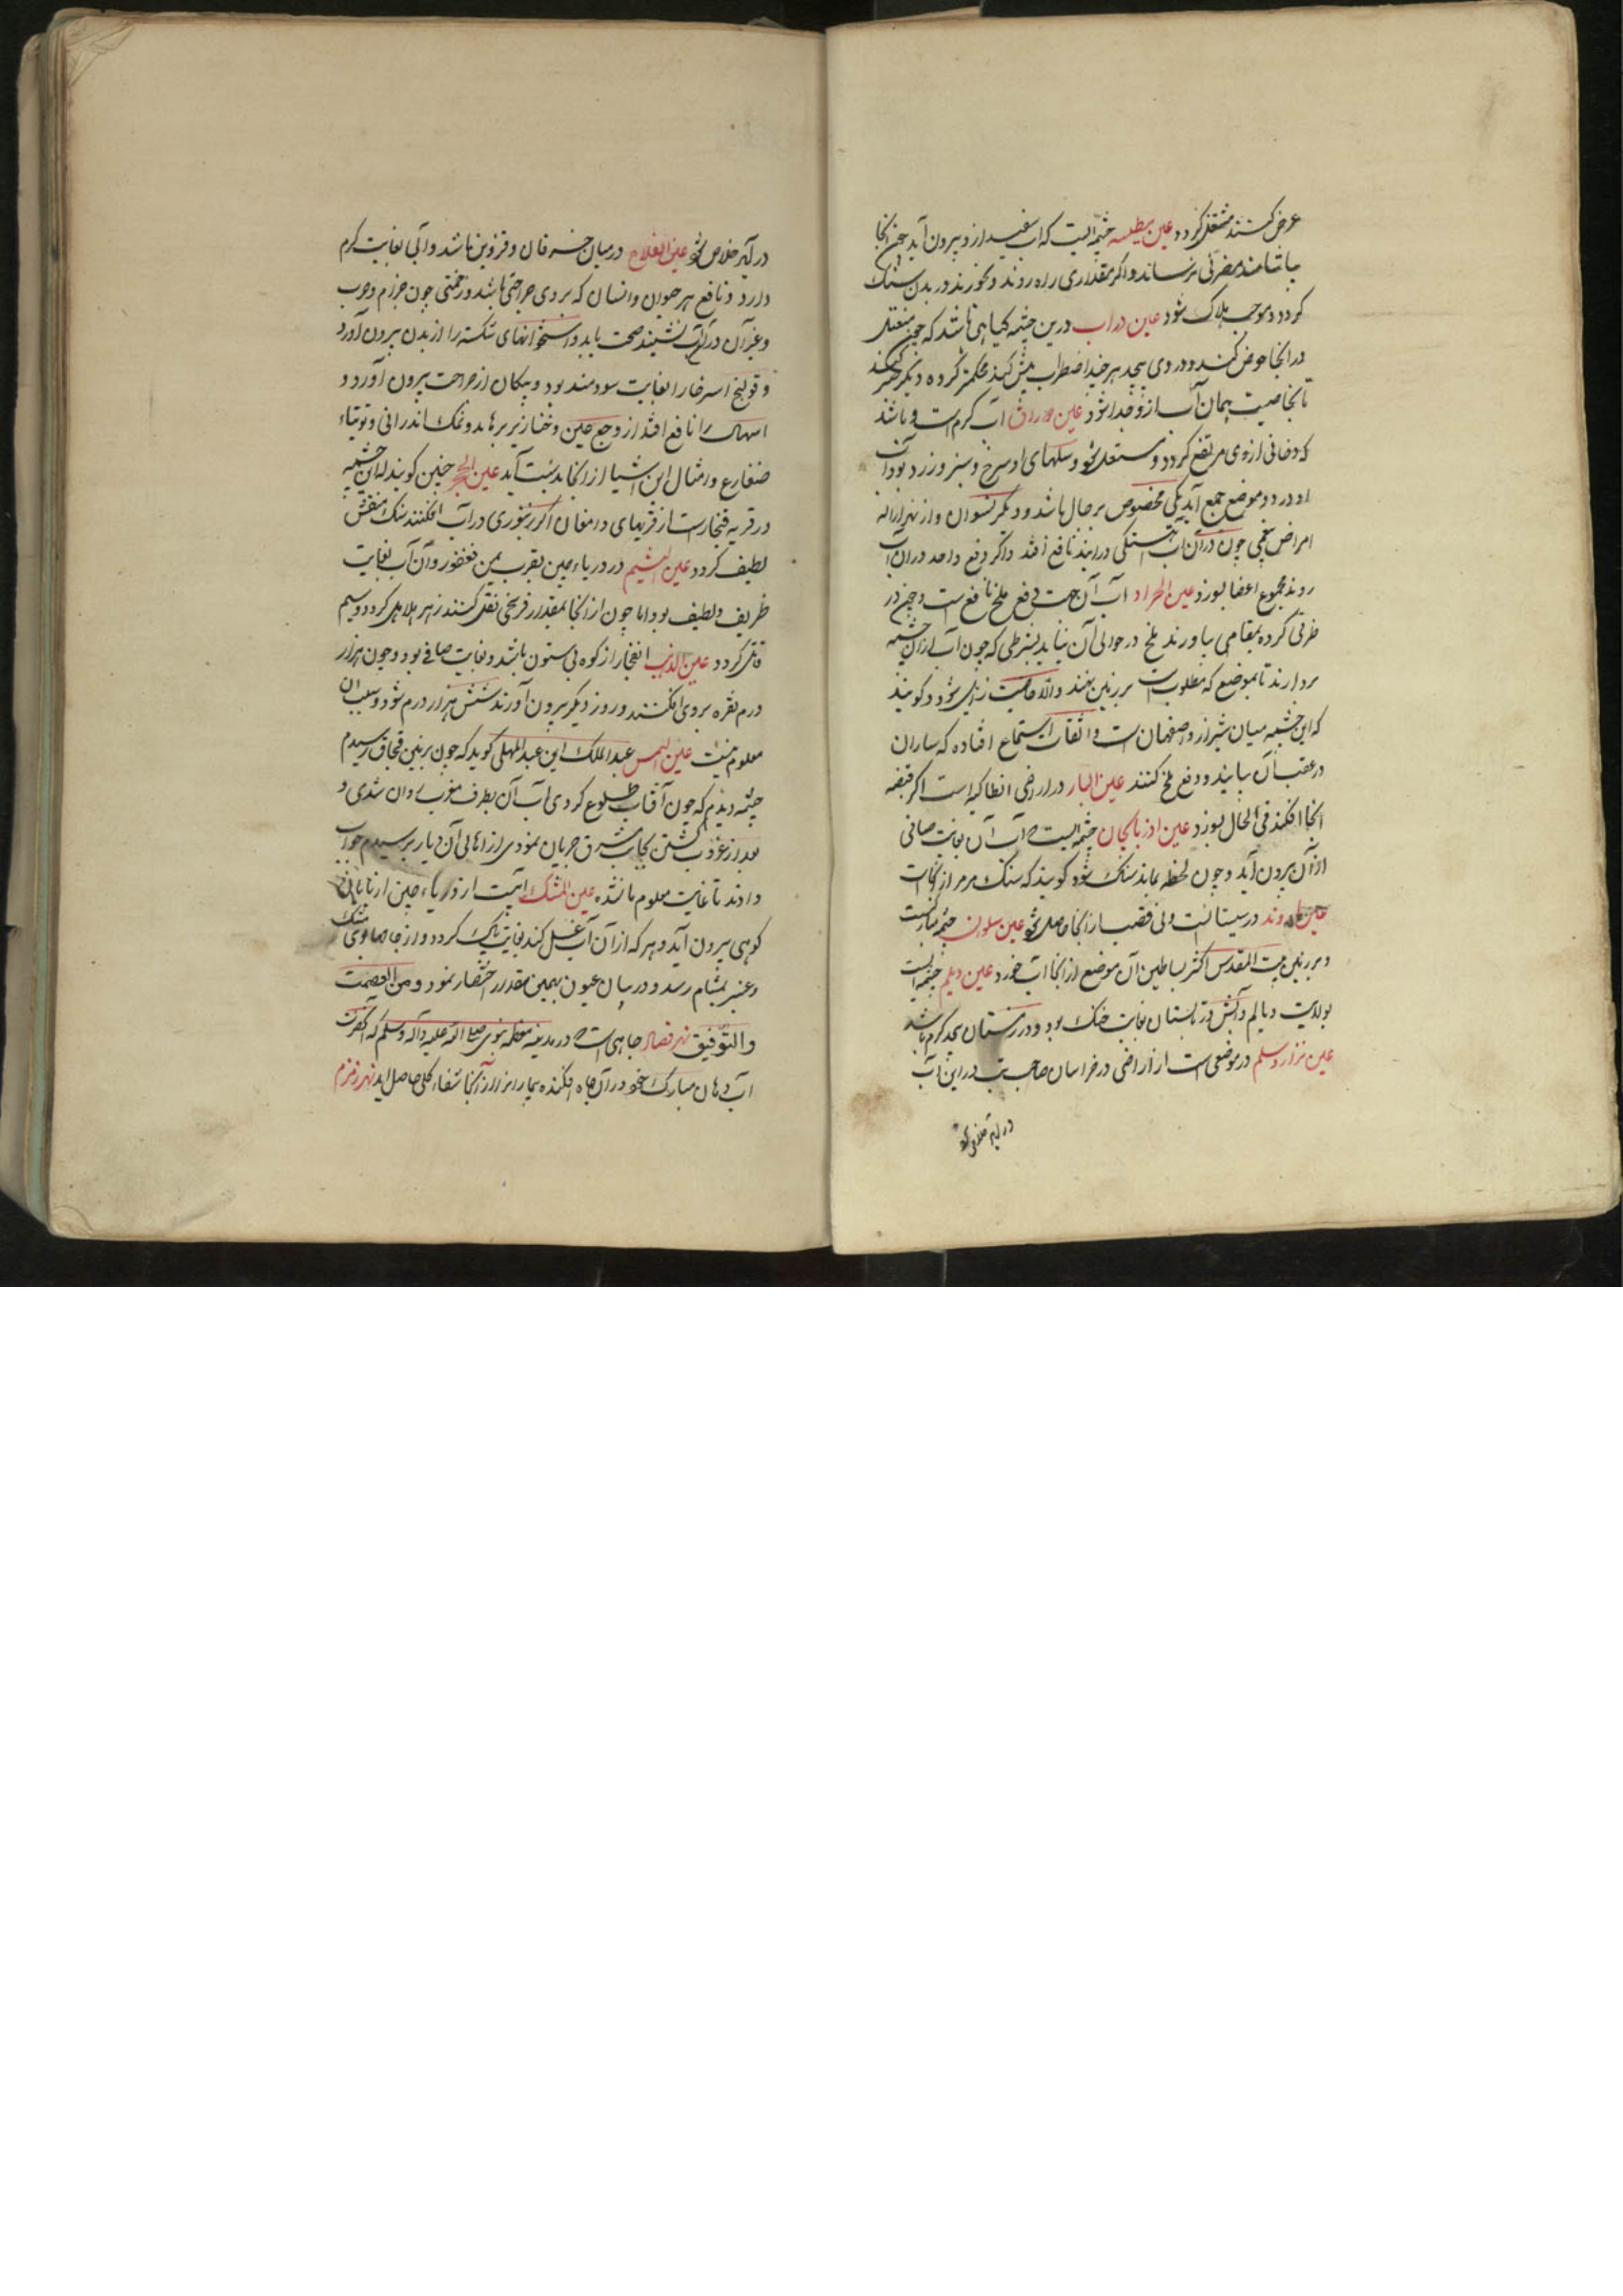 عرض کنند مشتعل کردد عین بیطیسه چشمه ایست که آب سفید از و بیرون آید چون آنجا
بیاشامند مضرتی نرساند و اکر مقداری راه روند و بخورند در بدن سنک
کردد و موجب هلاک شود عین دراب درین چشمه کیاهی باشد که چون
در آنجا خوض کنند و در وی پیچد هر چند اضطراب بیش کند محکمتر کردد
تا آب از و جدا شود عین دوراق آب کرم است و باشد
که دخانی از وی مرتفع کردد و مشتعل شود و سنکهای او سرخ و سبز و زرد بود و آب
او در دو موضع جمع آید یکی مخصوص برجال باشد و دیکر نسوان و از بهر ازاله
امراض بلغمی چون در آن آب آهستکی درآیند نافع افتد و اکر دفع واحد در آن آب
روند مجموع اعضا بسوزد عین الجراد آب آن جهت دفع ملخ نافع است و چون در
ظرفی کرده بمقامی بیاورند ملخ در حوالی آن نیاید بشرطی که چون آب از آن چشمه
بردارند تا بموضع که مطلوبست بر زمین ننهند و الا خاصیت زایل شود و کویند
که این چشمه میان شیراز و اصفهان است و از ثقات استماع افتاده که ساران
در عقب آن بیایند و دفع ملخ کنند عین النار در اراضی انطاکیه است اکر قبضه
آنجا افکنند فی الحال بسوزد عین اذربایجان چشمه ایست که آب آن بغایت صافی
از آن بیرون آید و چون لحظه بماند سنک شود کویند که سنک مرمر از آنجاست
در سیستانست و نی قصب از آنجا حاصل شود عین سلوان چشمه مبارکست
و بر زمین بیت المقدس اکثر بساطین آن موضع از آنجا آب خورد عین دیلم چشمه ایست
بولایت دیالم و آبش در تابستان بغایت خنک بود و در زمستان بحد کرم باشد
عین نزار وسلم در موضعی است از اراضی در خراسان صاحب تب در این آب
در آید خلاص شود
در آید خلاص شود عین الغلاح در میان و قزوین باشد و آبی بغایت کرم
دارد و نافع هر حیوان و انسان که بر وی جراحتی باشد و زحمتی چون جزام و جرب
و غیر آن در آن آب نشینند صحت یابد و استخوانهای شکسته را از بدن بیرون آورد
و قولنج را بغایت سودمند بود و پیکان از جراحت بیرون آورد و
اسهال را نافع افتد از وجع و خنازیر برهاند و نمک اندرانی و توتیاء
و امثال این اشیا از آنجا بدست آید عین الحجر چنین کویند که این چشمه
در قریه از قریهای دامغان اکر در آب افکنند سنک منقش
لطیف کردد عین الیشم در دریاء چین بقرب فغفور و آن آب بغایت
ظریف و لطیف بود اما چون از آنجا بمقدار فرسخی نقل کنند زهر هلاهل کردد و سم
قاتل کردد عین الذهب انفجار از کوه بی ستون باشد و بغایت صافی بود و چون هزار
درم نقره بر وی افکنند و روز دیکر بیرون آورند شش هزار درم شود و سبب آن
معلوم نیست عین الشمس عبد الملک ابن عبد المهلی کوید که چون بزمین قبجاق رسیدم
چشمه دیدم که چون آفتاب طلوع کردی آب آن بطرف مغرب روان شدی و
بعد از غروب کشتن بجانب مشرق جریان نمودی از اهالی آن دیار پرسیدم جواب
دادند تا غایت معلوم ما نشده عین المشک آبیست از دریاء چین از
کوهی بیرون آید و هر که از آن آب غسل کند بغایت پاک کردد و از جامها بوی مشک
و عنبر بمشام رسد و در بیان عیون بهمین مقدار اختصار نمود و من العصمت
والتوفیق نهر فصاله چاهی است در مدینه معظمه نبوی صلی الله علیه و آله وسلم که آنحضرت
آب دهان مبارک خود در آن چاه افکنده بیمار از آب آنجا شفاء کلی حاصل آید نهر زمزم